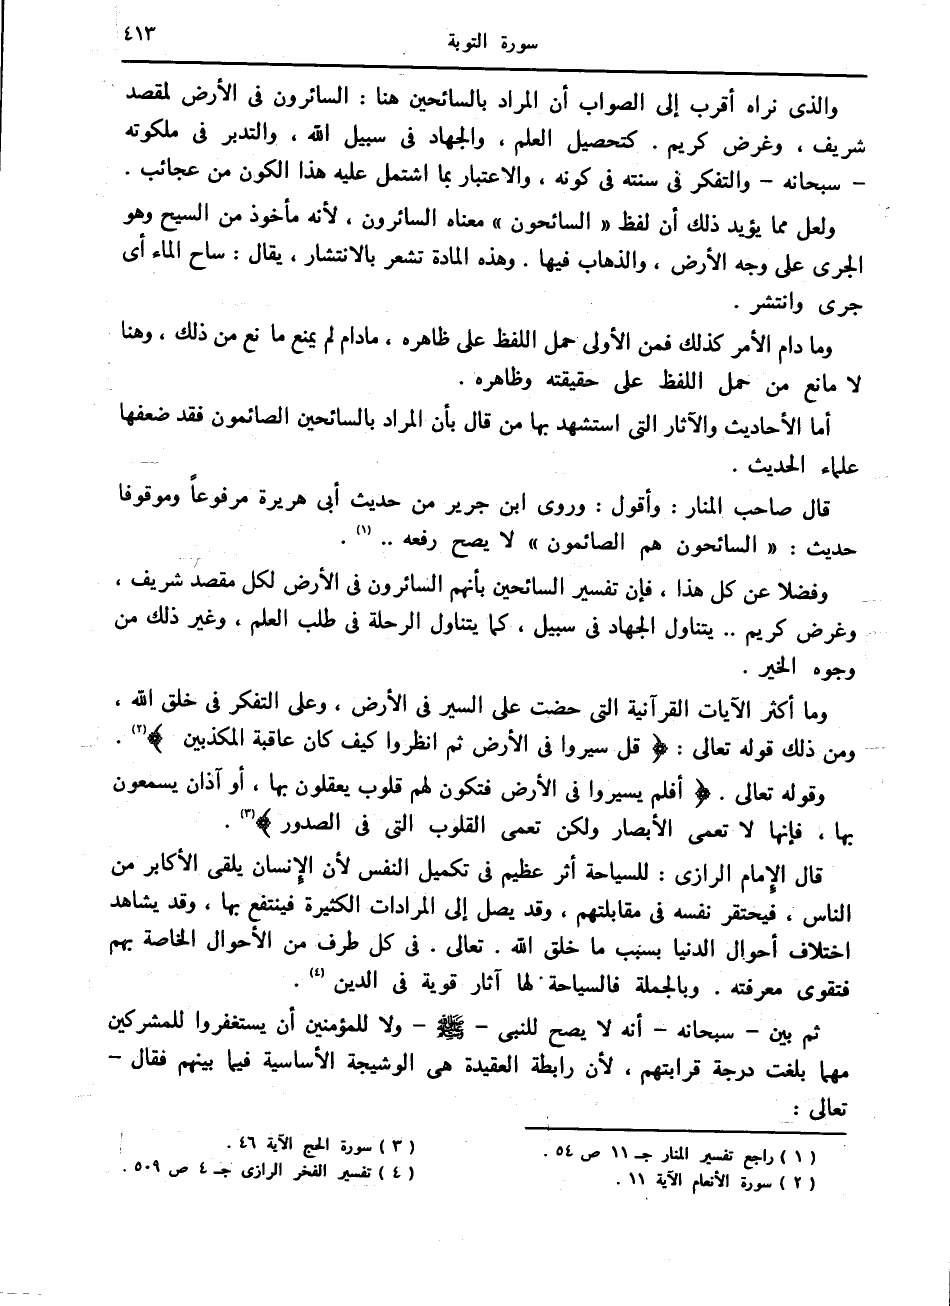 سورة التوبة
٤١٣
والذى نراه أقرب إلى الصواب أن المراد بالسائحين هنا : السائرون فى الأرض لمقصد
شريف ، وغرض كريم . كتحصيل العلم ، والجهاد فى سبيل الله ، والتدبر فى ملكوته
– سبحانه – والتفكر فى سنته فى كونه ، والاعتبار بما اشتمل عليه هذا الكون من عجائب .
ولعل مما يؤيد ذلك أن لفظ « السائحون » معناه السائرون ، لأنه مأخوذ من السيح وهو
الجرى على وجه الأرض ، والذهاب فيها . وهذه المادة تشعر بالانتشار ، يقال : ساح الماء أى
جرى وانتشر .
وما دام الأمر كذلك فمن الأولى حمل اللفظ على ظاهره ، مادام لم يمنع ما نع من ذلك ، وهنا
لا مانع من حمل اللفظ على حقيقته وظاهره .
أما الأحاديث والآثار التى استشهد بها من قال بأن المراد بالسائحين الصائمون فقد ضعفها
علماء الحديث .
قال صاحب المنار : وأقول : وروى ابن جرير من حديث أبى هريرة مرفوعاً وموقوفا
حديث : « السائحون هم الصائمون » لا يصح رفعه .. (١) .
وفضلا عن كل هذا ، فإن تفسير السائحين بأنهم السائرون فى الأرض لكل مقصد شريف ،
وغرض كريم .. يتناول الجهاد فى سبيل ، كما يتناول الرحلة فى طلب العلم ، وغير ذلك من
وجوه الخير .
وما أكثر الآيات القرآنية التى حضت على السير فى الأرض ، وعلى التفكر فى خلق الله ،
ومن ذلك قوله تعالى : ﴿ قل سيروا فى الأرض ثم انظروا كيف كان عاقبة المكذبين ﴾(٢) .
وقوله تعالى . ﴿ أفلم يسيروا فى الأرض فتكون لهم قلوب يعقلون بها ، أو آذان يسمعون
بها ، فإنها لا تعمى الأبصار ولكن تعمى القلوب التى فى الصدور ﴾(٣) .
قال الإمام الرازى : للسياحة أثر عظيم فى تكميل النفس لأن الإنسان يلقى الأكابر من
الناس ، فيحتقر نفسه فى مقابلتهم ، وقد يصل إلى المرادات الكثيرة فينتفع بها ، وقد يشاهد
اختلاف أحوال الدنيا بسبب ما خلق الله . تعالى . فى كل طرف من الأحوال الخاصة بهم
فتقوى معرفته . وبالجملة فالسياحة لها آثار قوية فى الدين (٤) .
ثم بين – سبحانه – أنه لا يصح للنبى – ﷺ – ولا للمؤمنين أن يستغفروا للمشركين
مهما بلغت درجة قرابتهم ، لأن رابطة العقيدة هى الوشيجة الأساسية فيما بينهم فقال –
تعالى :
( ١ ) راجع تفسير المنار جـ ١١ ص ٥٤ .
( ٢ ) سورة الأنعام الآية ١١ .
( ٣ ) سورة الحج الآية ٤٦ .
( ٤ ) تفسير الفخر الرازى جـ ٤ ص ٥٠٩ .